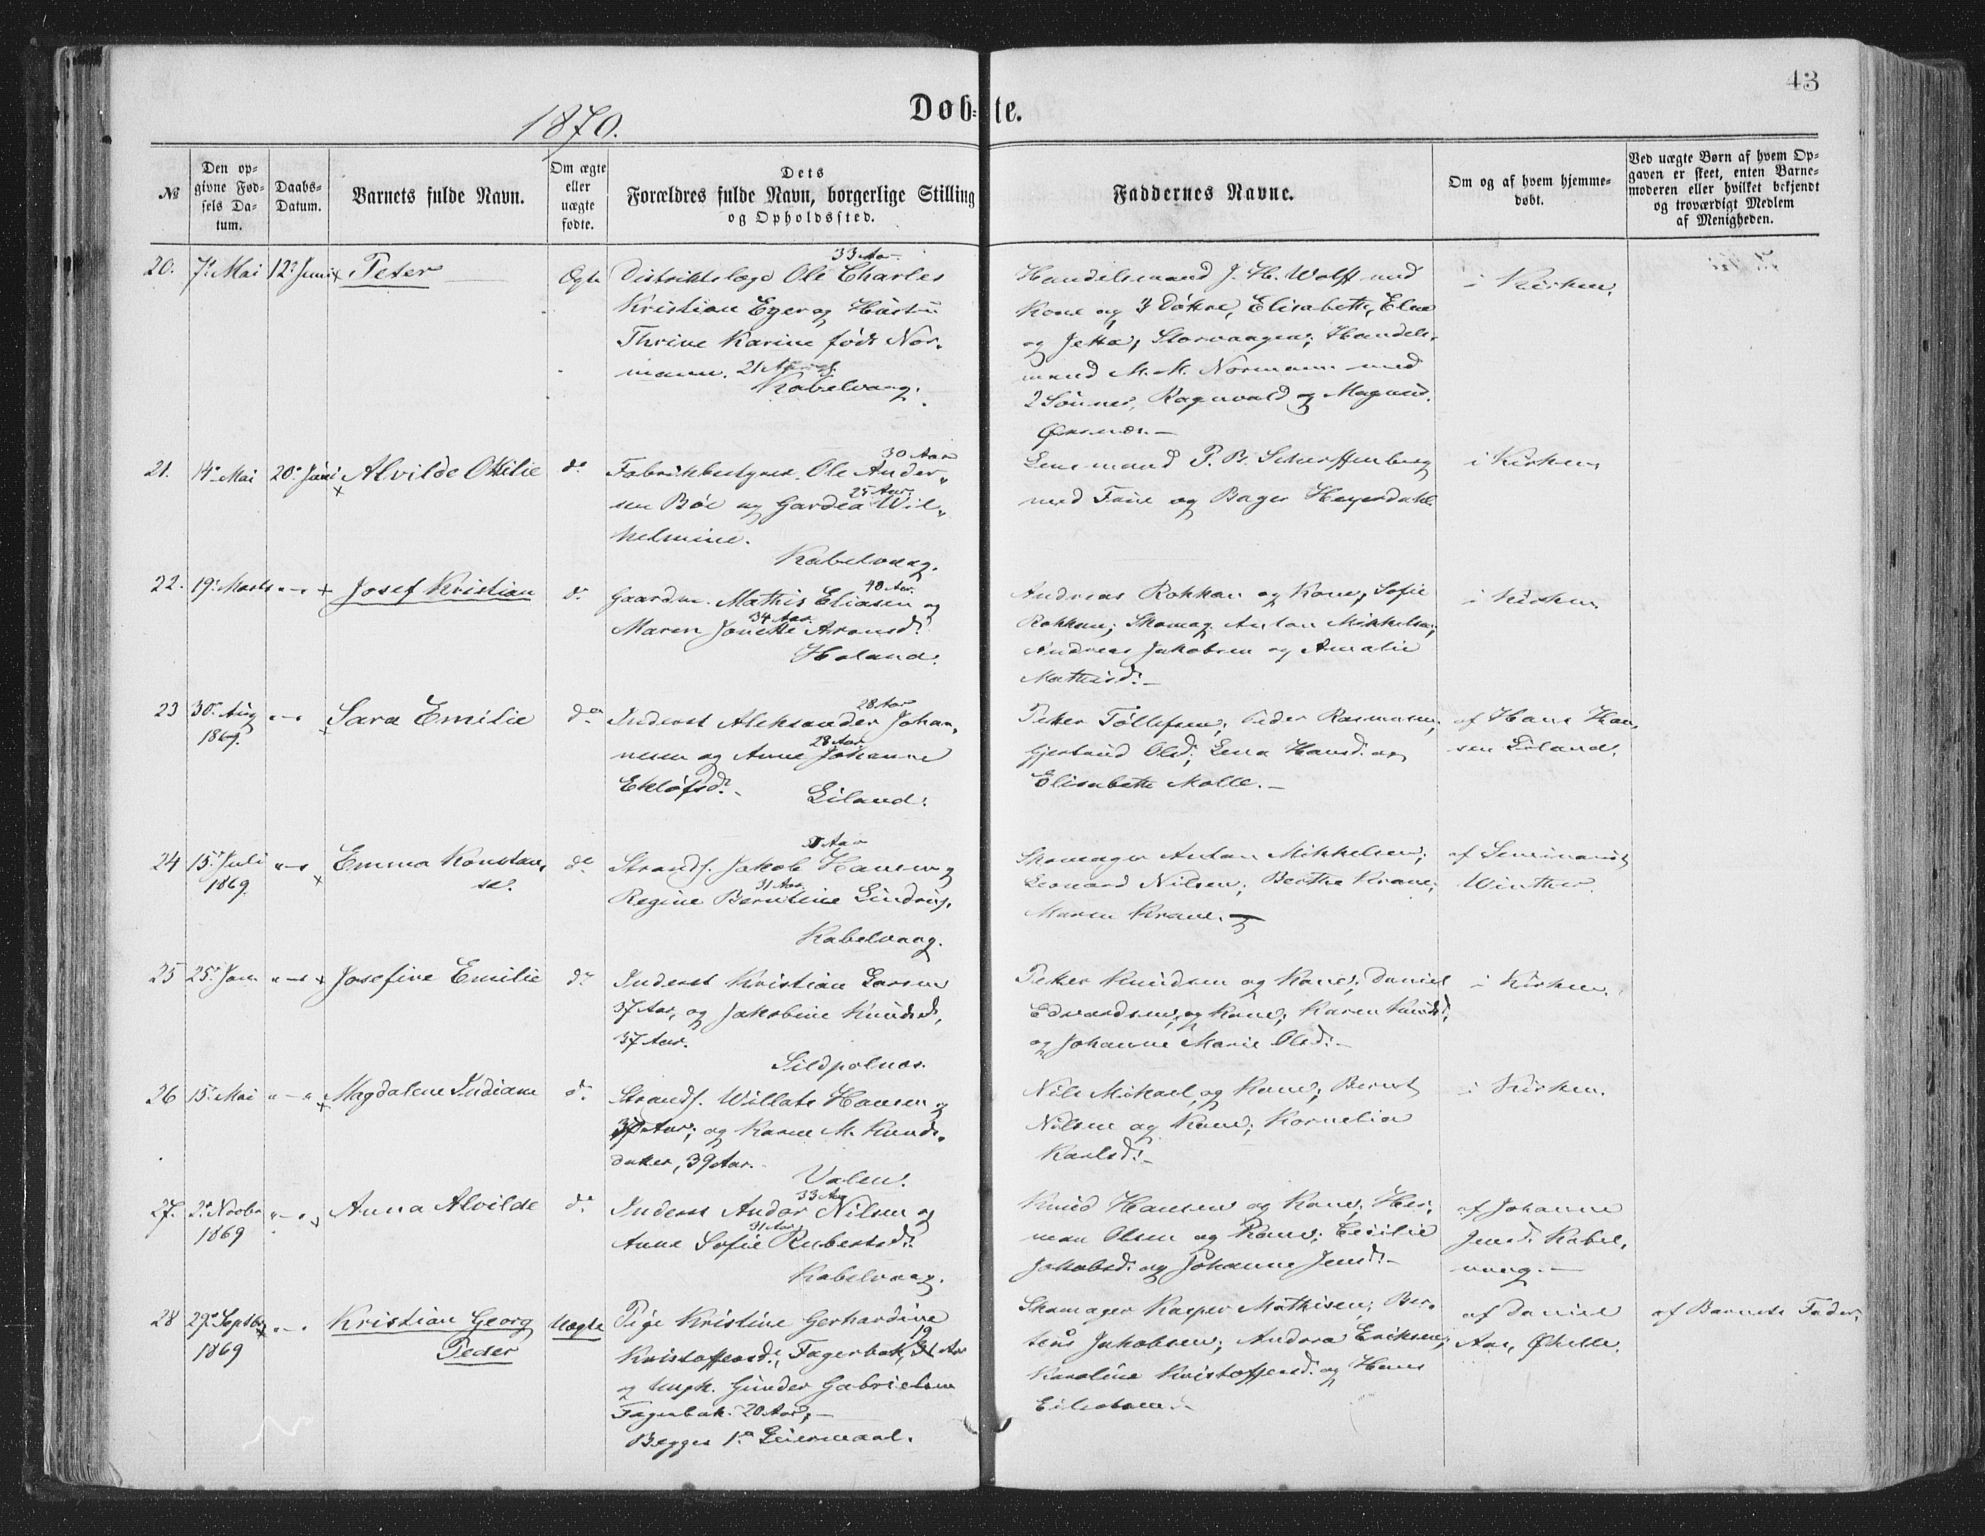 43
1870.
Døb-te.
№
Den op-
givne Fød-
sels Da-
tum.
Daabs-
Datum.
Barnets fulde Navn.
Om ægte
eller
uægte
fødte.
Dets
Forældres fulde Navn, borgerlige Stilling
og Opholdssted.
Faddernes Navne.
Om og af hvem hjemme-
døbt.
Ved uægte Børn af hvem Op-
gaven er skeet, enten Barne-
moderen eller hvilket bekjendt
og troværdigt Medlem
af Menigheden.
20. 7de Mai 12te Juni Peter Ægte
33 Aar
Distriktslæge Ole Charles
Kristian Eger og Hustru
Thrine Karine født Nor-
mann. 21 Aar
Kabelvaag.
Handelsmand J. H. Wolff med
Kone og 3 Døtre, Elisabeth, Elen
og Jetta, Storvaagen; Handels-
mand M. M. Normann med
2 Sønner, Ragnvald og Magnus.
i Kirken.
21. 14de Mai 20de Juni Alvilde Ottilie do
30 Aar
Fabrikbestyrer Ole Ander-
25 Aar
sen Böe og Gardea Wil-
helmine.
Kabelvaag.
Lensmand P. B. Scharffenberg
med Frue og Bager Heyerdahl
i Kirken
22. 19de Marts "-" Josef Kristian do
40 Aar.
Gaardm. Mathis Eliasen og
34 Aar.
Maren Jonette Aronsd.
Holand.
Andreas Rokkan og Kone, Sofie
Rokkan; Skomag. Anton Mikkelsen;
Andreas Jakobsen og Amalie
Mathisd. -
i Kirken
23 30te Aug "-" Sara Emilie do
1869.
28 Aar
Inderst Aleksander Johan-
28 Aar
nesen og Anne Johanne
Eklöfsd. -
Eiland.
Peter Tollefsen; Peder Rasmusen;
Gjertrud Olsd; Lena Hansd. og
Elisabeth Molle. -
af Hans Han-
sen Eiland.
24 15de Juli "-" Emma Konstan- do
1869. se.
Aar
Strands. Jakob Hansen og
31 Aar
Regine Berntine Lindrup.
Kabelvaag.
Skomager Anton Mikkelsen;
Leonard Nilsen; Berthe Krane;
Maren Krane.
af Seminarist
Winther.
25 25de Jan "-" Josefine Emilie do
Inderst Kristian Larsen
37 Aar, og Jakobine Knudsd,
37 Aar.
Sildpolnes.
Peter Knudsen og Kone; Daniel
Edvardsen og Kone; Karen Knudsd;
og Johanne Marie Olsd. -
i Kirken.
26 15de Mai "-" Magdalene Indiane do
Strands. Willats Hansen og
Aar; og Karen M. Knuds-
datter, 39 Aar.
Valen.
Nils Mikael og Kone; Bernt
Nilsen og Kone; Kornelia
Karlsd. -
i Kirken.
27. 2de Novbr "-" Anna Alvilde do
1869
33 Aar
Inderst Andor Nilsen og
31 Aar
Anne Sofie Rubertsd.
Kabelvaag.
Knud Hansen og Kone; Her-
man Olsen og Kone; Cecilie
Jakobsd. og Johanne Jensd. -
af Johanne
Jensd. Kabel-
vaag. -
28 29de Septbr "-" Kristian Georg Uægte
1869 Peder
Pige Kristine Gerhardine
19
Kristoffersd., Fagerbak, Aar
og Ungk. Gunder Gabrielsen
Fagerbak. 20 Aar; -
Begges 1ste Leiermaal.
Skomager Kasper Mathisen; Ber-
teus Jakobsen; Andrea Eriksen;
Karoline Kristoffersd. og Hans
af Daniel
Aas, Ørkelle.
af Barnets Fader.